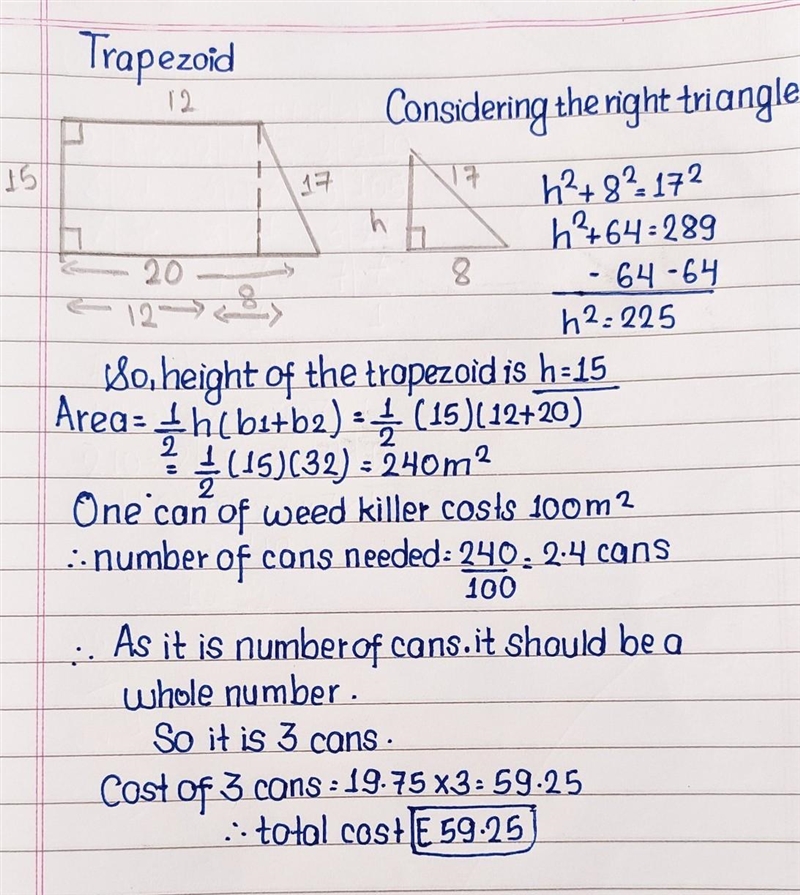 Trapezoid
12
Considering the right triangle
15
17
17
h
8
20
8
12
h²+8²=17²
h²+64=289
-64 -64
h²=225
So, height of the trapezoid is h=15
Area=1/2 h(b1+b2)=1/2 (15)(12+20)
=1/2 (15)(32)=240m²
One can of weed killer costs 100m²
∴number of cans needed=240/100=2.4 cans
∴ As it is number of cans.it should be a
whole number.
So it is 3 cans.
Cost of 3 cans=19.75×3=59.25
∴total cost E 59.25